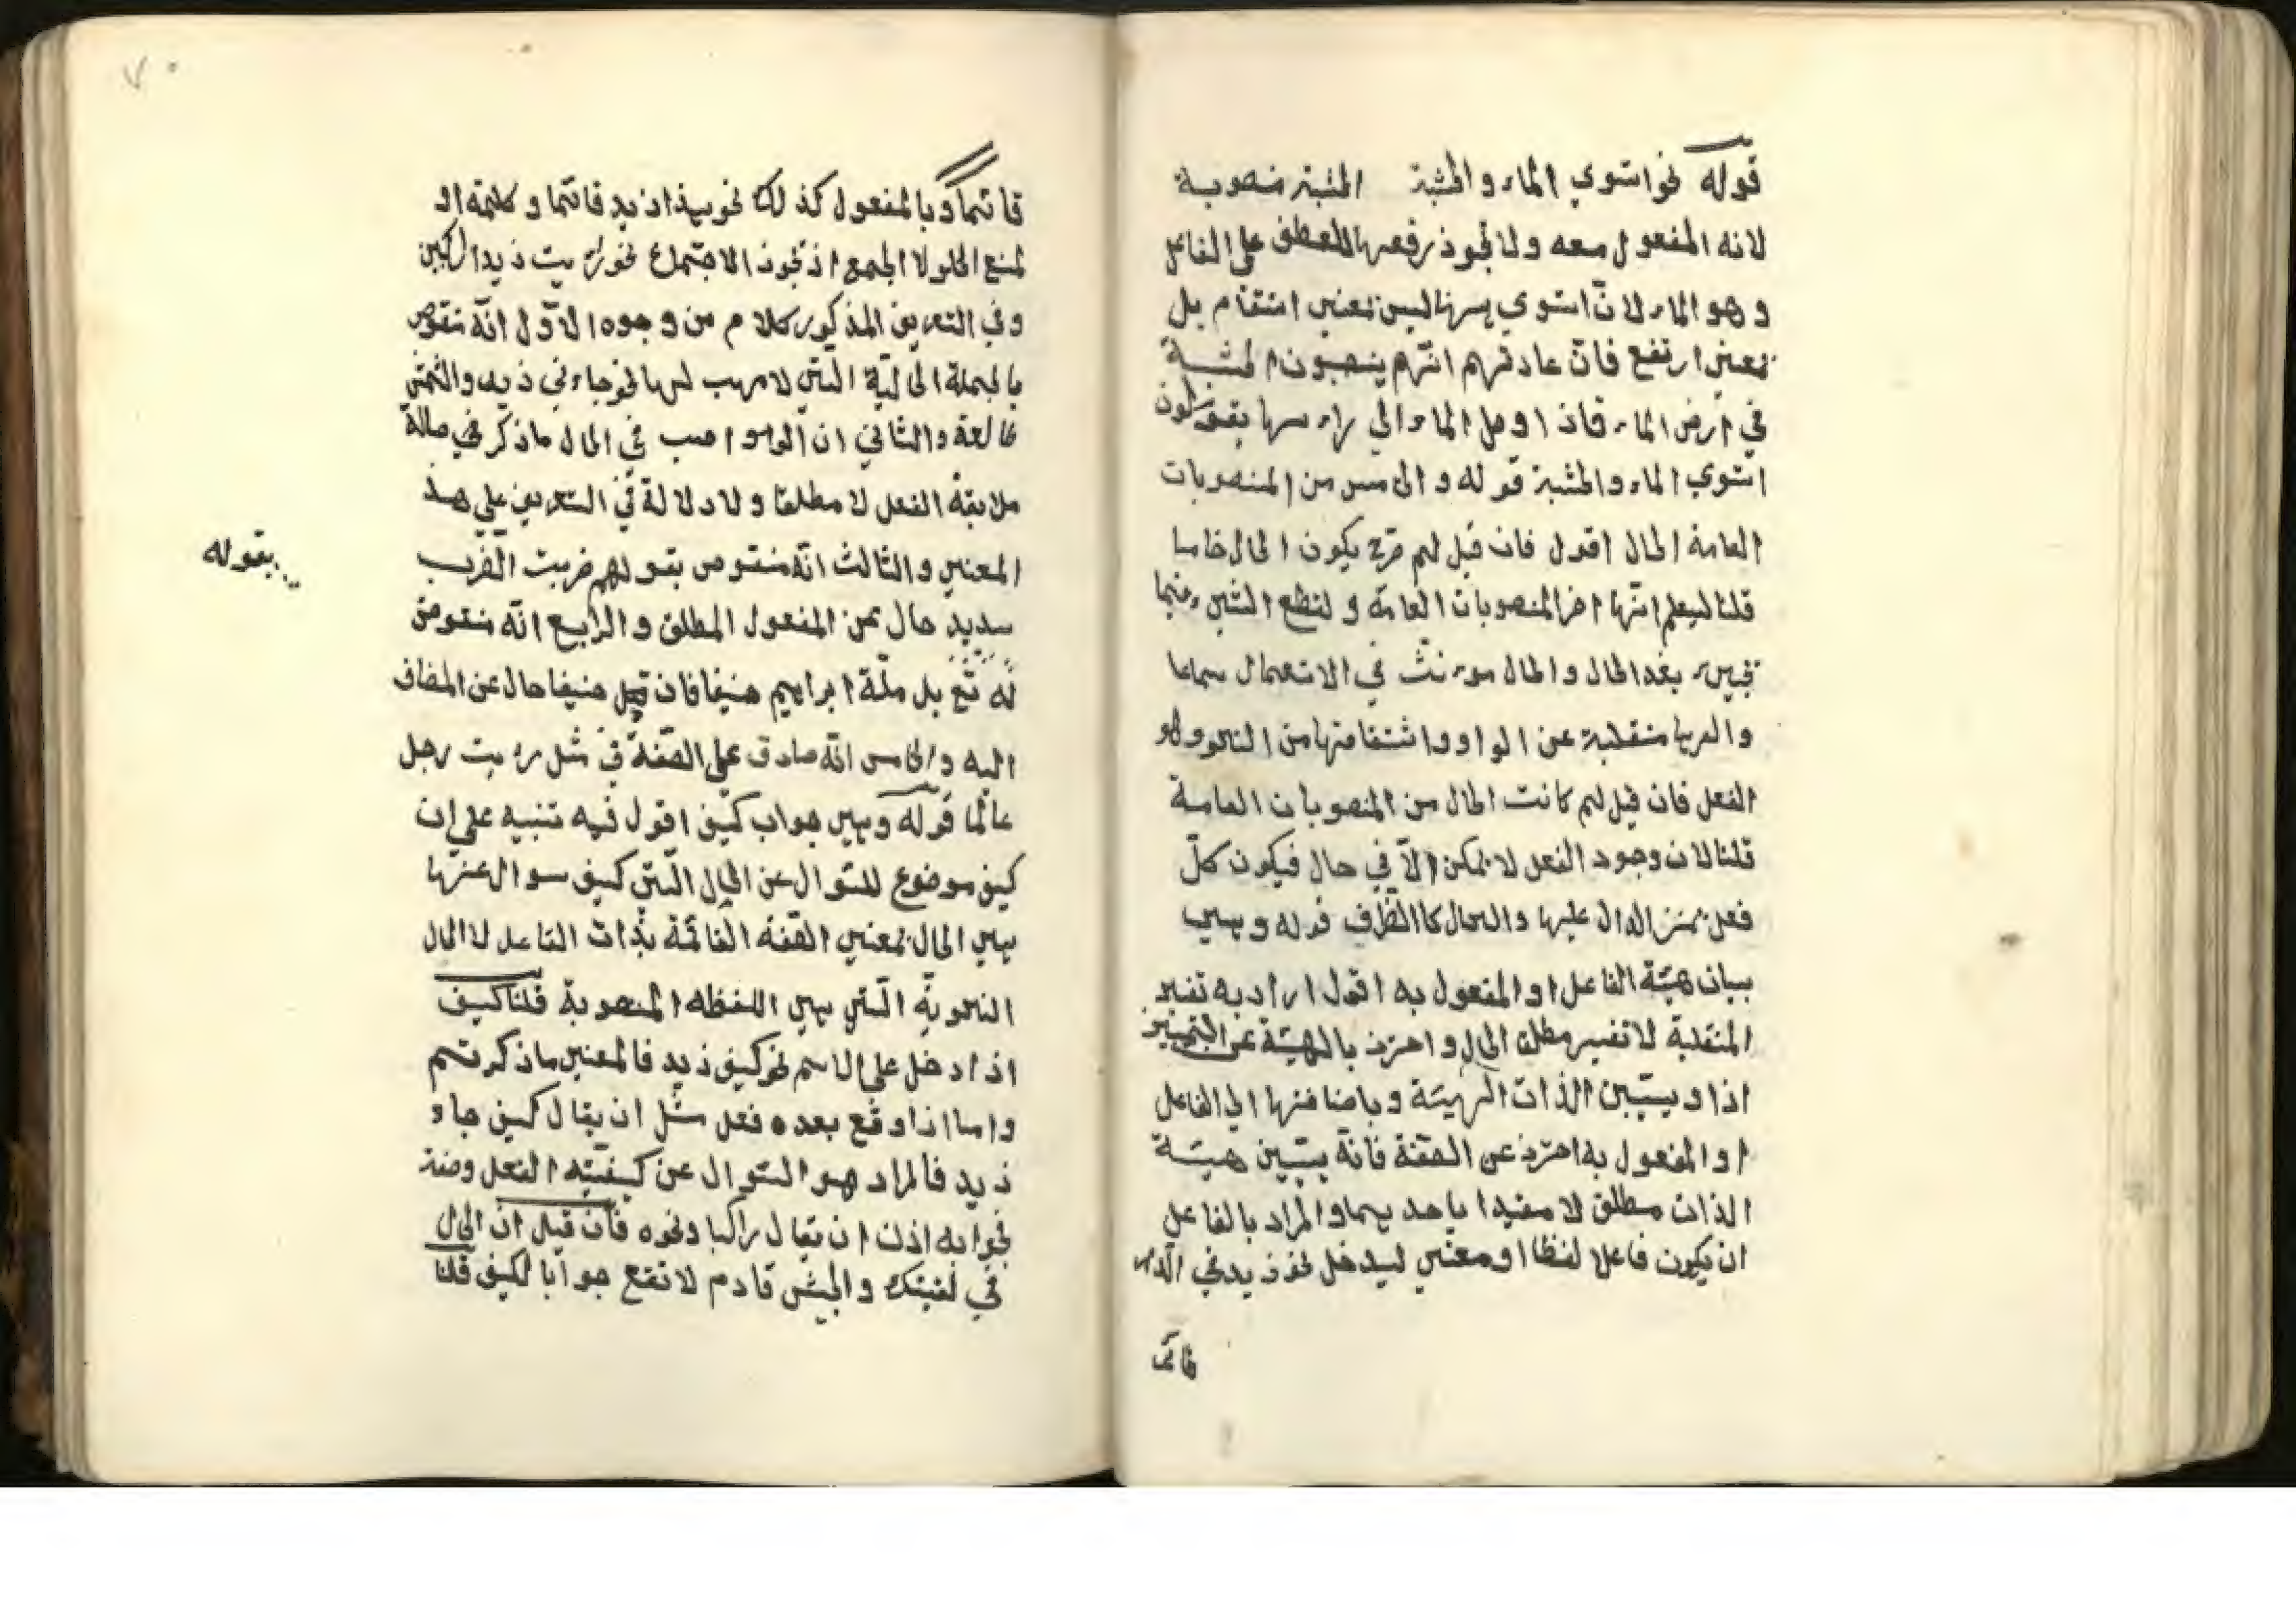 قوله نحو استوي الماء والخشبة الخشبة منصوبة
لانه المفعول معه ولا يجوز رفعها للعطف علي الفاعل
وهو الماء لانّ استوي ههنا ليس بمعني استقام بل
بمعني ارتفع فانّ عادتهم انّهم ينصبون الخشبة
في ارض الماء فاذا وصل الماء الي راسها يقولون
استوي الماء والخشبة قوله والخامس من المنصوبات
العامة الحال اقول فان قيل لم صرح بكون الحال خامسا
قلنا ليعلم انّها اخر المنصوبات العامّة ولقطع
بعد الحال والحال مونث في الاستعمال سماعا
والفها منقلبة عن الواو واشتقاقها من النحو وهو
الفعل فان قيل لم كانت الحال من المنصوبات العامة
قلنا لان وجود الفعل لا يمكن الّا في حال فيكون كلّ
فعل الدال عليها والحال كالظرف قوله وهي
بيان هيئة الفاعل او المفعول به اقول اراد به تفسير
المنتقلبة لا تفسير مطلق الحال واحترز بالهيئة عن التمييز
اذا و يبيّن الذات الهيئة وباضافتها الي الفاعل
او المفعول به احترز عن الصفة فانّه يبيّن هيئة
الذات مطلق لا مقيدا باحديهما والمراد بالفاعل
ان يكون فاعلا لفظا او معني ليدخل نحو زيد في الدار
قائما
قائما وبالمفعول كذلك نحو هذا زيد قائما وكلمة او
لمنع الخلو لا الجمع اذ يجوز الاجتماع نحو رايت زيدا راكبين
وفي التعريف المذكور كلام من وجوه الاوّل انّه منقوض
بالجملة الحالية التي لا صاحب لها نحو جاءني زيد والشمس
طالعة والثاني ان الواو صاحب في الحال ما ذكر في حالة
ملابقة الفعل لا مطلقا ولا دلالة في التعريف علي هذ
المعني والثالث انّه منقوض بقولهم ضربت الضرب
شديد حال عن المفعول المطلق والرابع انّه منقوض
بقوله
له تع بل ملّة ابراهيم حنيفا فان قيل حنيفا حال عن المضاف
اليه والخامس انّه صادق علي الصّفة في مثل رايت رجل
عالما قوله وهي جواب كيف اقول فيه تنبيه علي ان
كيف موضوع للسّوال عن الحال الّتي كيف سوال عنها
هي الحال بمعني الصّفة القائمة بذات الفاعل لا الحال
النحوية الّتي هي اللفظه المنصوبة قلنا كيف
اذا دخل علي الاسم نحو كيف زيد فالمعني ما ذكرتم
واما اذا وقع بعده فعل مثل ان يقال كيف جاء
زيد فالمراد هو السّوال عن كيفيّة الفعل وصفة
فجوابه اذن ان يقال راكبا ونحوه فان قيل انّ الحال
في لقيتك والجيش قادم لا تقع جوابا لكيف قلنا